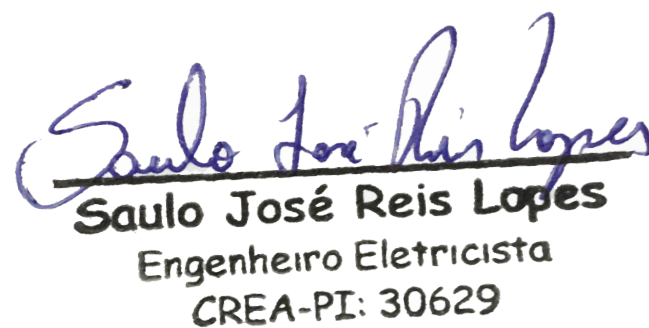 Saulo José Reis Lopes
Saulo José Reis Lopes
Engenheiro Eletricista
CREA-PI: 30629